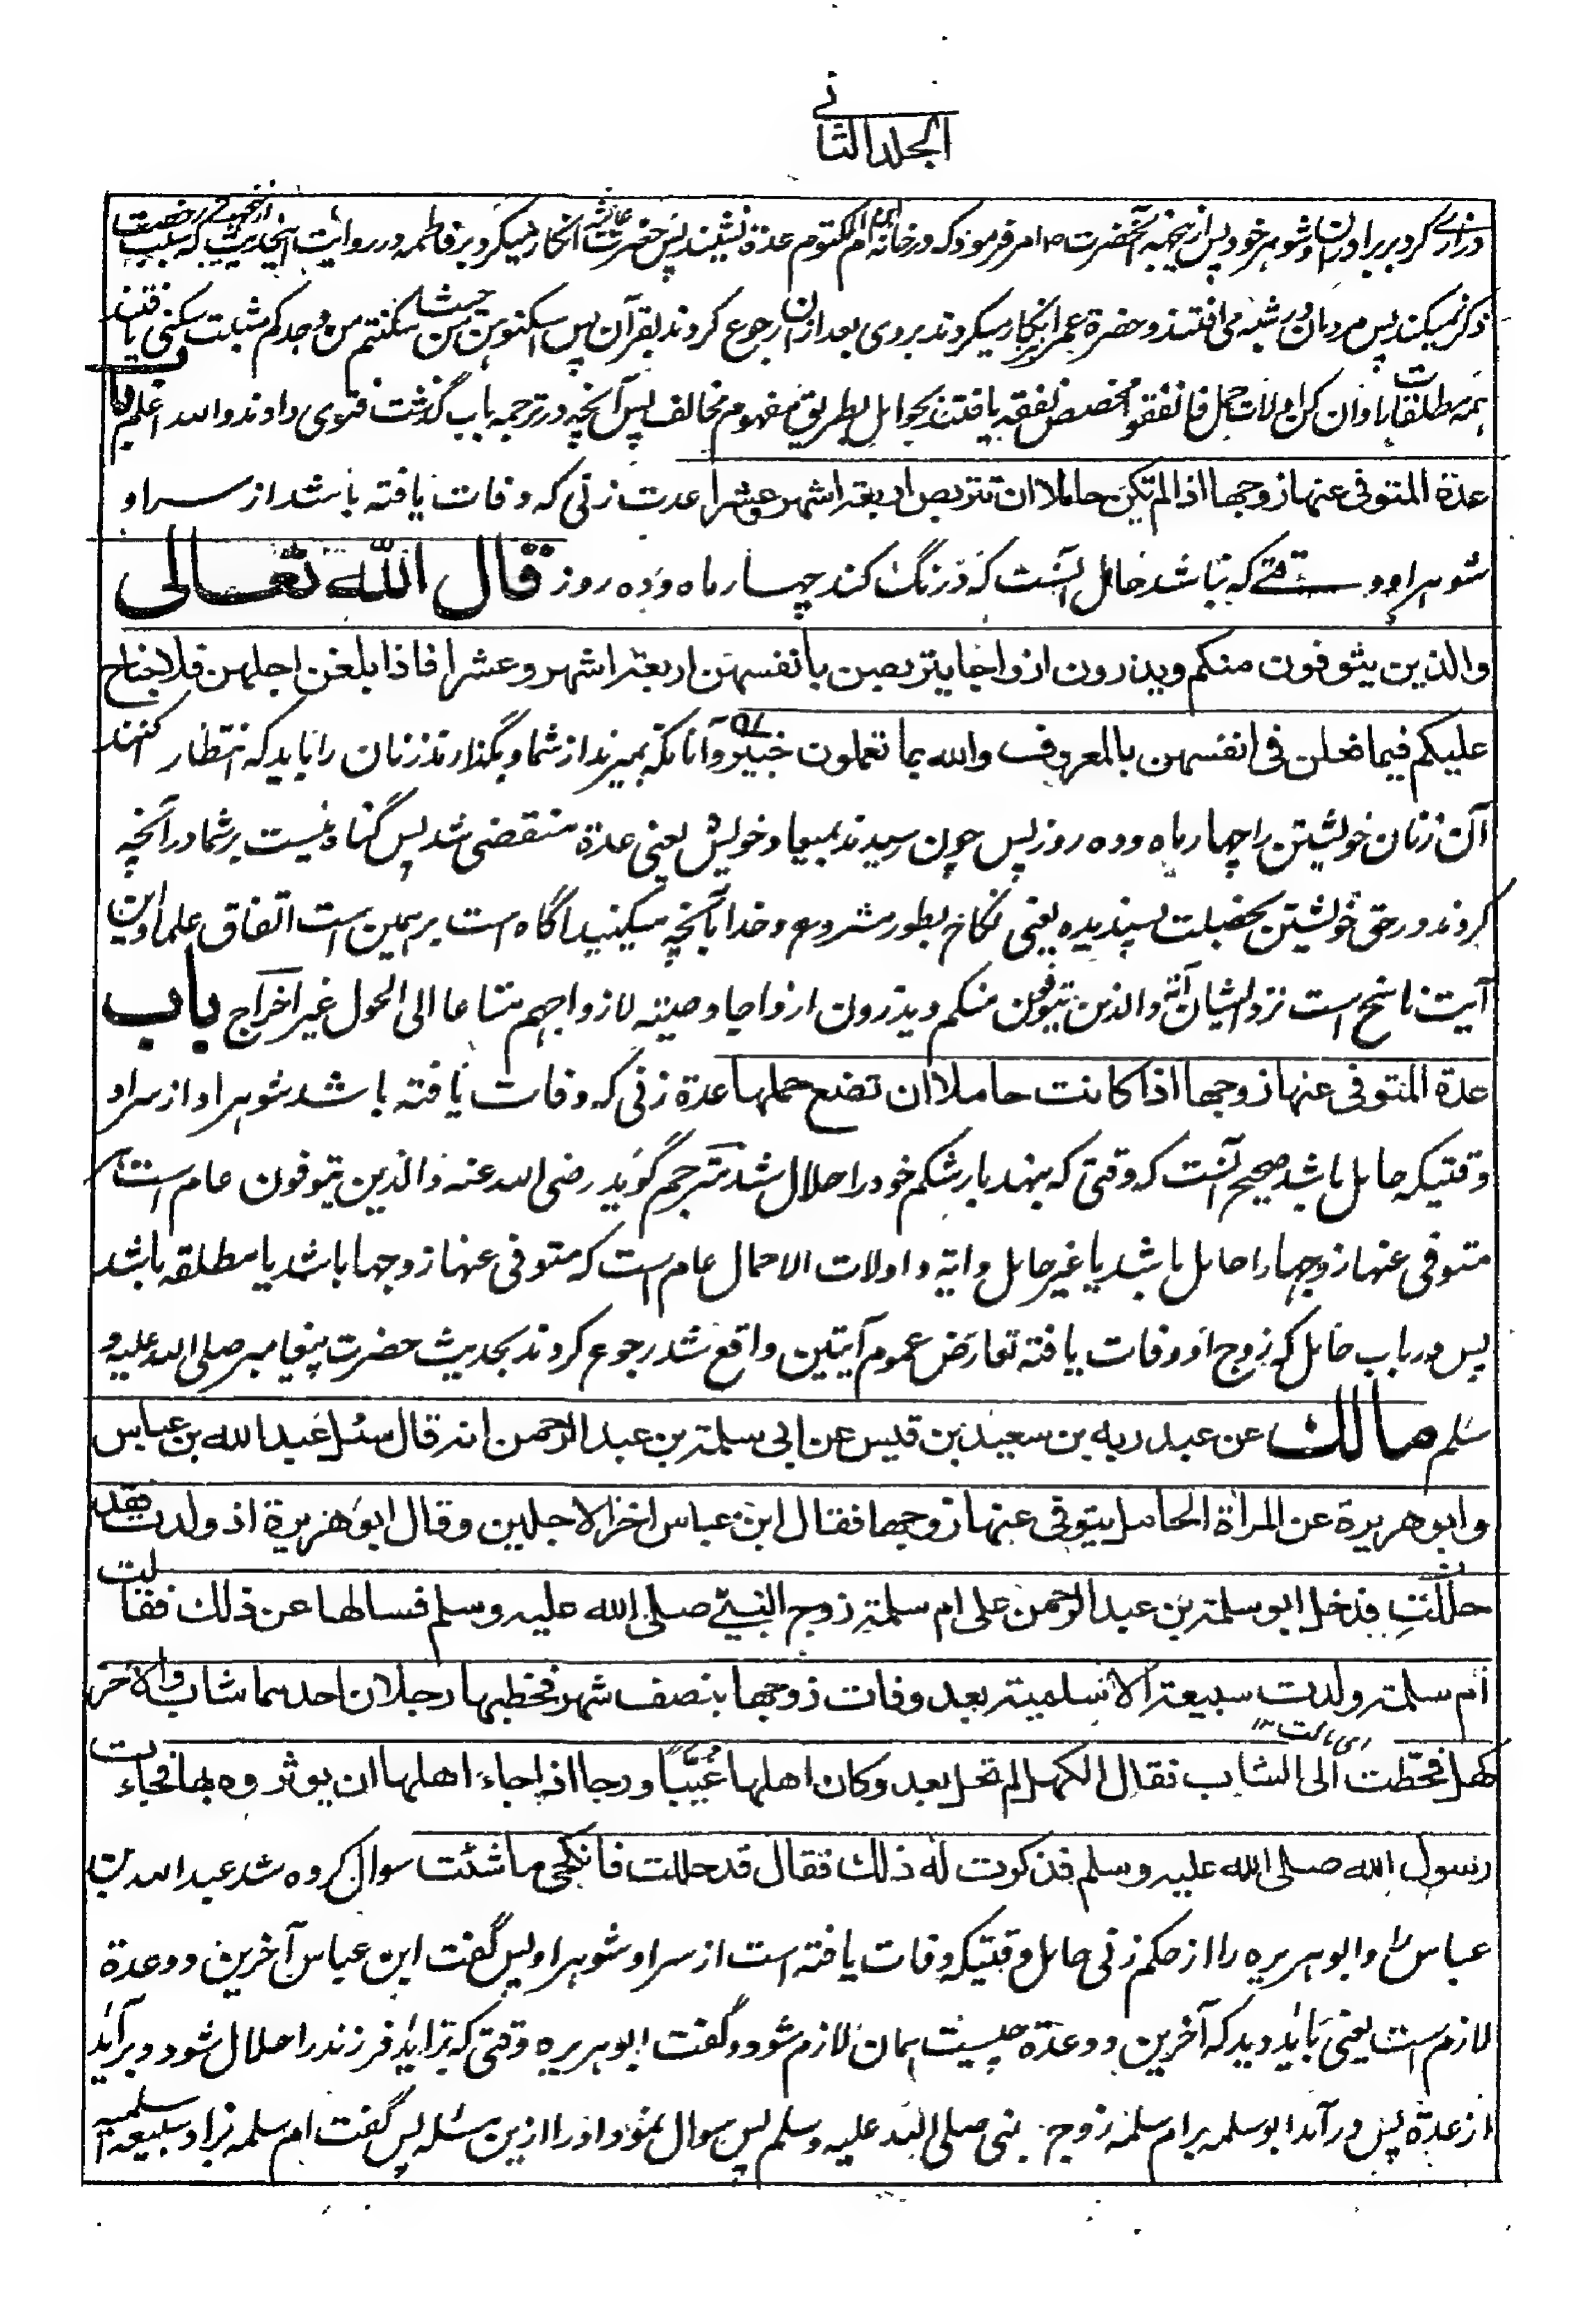 الجلد الثانی
درازی کرد بر برادران شوهر خود پس ازینجهه آنحضرت امر فرمود که در خانه ابن ام المکتوم عدة نشیند پس حضرت عائشه انکار میکرد بر فاطمه در روایت اینحدیث که سبب رخصت
ذکر نمیکند پس مردمان در شبه می افتند و حضرة عمر نیز انکار میکردند بروی بعد ازان رجوع کردند بقرآن پس اسکنوهن من حیث سکنتم من وجدکم مثبت سکنی یافتند
همه مطلقات را و ان کن اولات حمل فانفقوا مخصص نفقه یافتند بحوامل بطریق مفهوم مخالف پس آنچه در ترجمه باب گذشت فتوی دادند والله اعلم باب
عدة المتوفی عنها زوجها اذا لم تکن حاملا ان تتربص اربعة اشهر وعشرا عدت زنی که وفات یافته باشد از سر او
شوهر او وقتے که نباشد حامل آنست که درنگ کند چهار ماه و ده روز قال الله تعالی
والذین یتوفون منکم ویذرون ازواجا یتربصن بانفسهن اربعة اشهر وعشرا فاذا بلغن اجلهن فلا جناح
علیکم فیما فعلن فی انفسهن بالمعروف والله بما تعملون خبیر و آنانکه بمیرند از شما و بگذارند زنان را باید که انتظار کنند
آن زنان خویشتن را چهار ماه و ده روز پس چون رسیدند بمیعاد خویش یعنی عدة منقضی شد پس گناه نیست بر شما در آنچه
کردند در حق خویشتن بخصلت پسندیده یعنی نکاح بطور مشروع و خدا بآنچه میکنید آگاه است برهمین است اتفاق علما و این
آیت ناسخ است نزد ایشان آیة والذین یتوفون منکم ویذرون ازواجا وصیته لازواجهم متاعا الی الحول غیر اخراج باب
عدة المتوفی عنها زوجها اذا کانت حاملا ان تضع حملها عدة زنی که وفات یافته باشد شوهر او از سر او
وقتیکه حامل باشد صحیح آنست که وقتی که بنهد بار شکم خود را حلال شد مترجم گوید رضی الله عنه والذین یتوفون عام است
متوفی عنها زوجها را حامل باشد یا غیر حامل وایه واولات الاحمال عام است که متوفی عنها زوجها باشد یا مطلقه باشد
پس در باب حامل که زوج او وفات یافته تعارض عموم آیتین واقع شد رجوع کردند بحدیث حضرت پیغامبر صلی الله علیه و
سلم مالك عن عبد ربه بن سعید بن قیس عن ابی سلمة بن عبد الرحمن انه قال سئل عبد الله بن عباس
وابو هریرة عن المرأة الحامل یتوفی عنها زوجها فقال ابن عباس اخر الاجلین وقال ابو هریرة اذ ولدت فقد
حللت فدخل ابو سلمة بن عبد الرحمن علی ام سلمة زوج النبی صلی الله علیه وسلم فسالها عن ذلك فقالت
ام سلمة ولدت سبیعة الاسلمیة بعد وفات زوجها بنصف شهر فخطبها رجلان احدهما شاب والآخر
کهل فحطت الی الشاب فقال الکهل لم تحل بعد وکان اهلها غیبا ورجا اذا جاء اهلها ان یوثروه بها فجاءت
رسول الله صلی الله علیه وسلم فذکرت له ذلك فقال قد حللت فانکحی ما شئت سوال کرده شد عبد الله بن
عباس و ابو هریره را از حکم زنی حامل وقتیکه وفات یافته است از سر او شوهر او پس گفت ابن عباس آخرین دو عدة
لازم است یعنی باید دید که آخرین دو عدة چیست همان لازم شود و گفت ابو هریره وقتی که بزاید فرزند را حلال شود و برآید
از عدة پس در آمد ابو سلمه بر ام سلمه زوج نبی صلی الله علیه وسلم پس سوال نمود او را ازین مسئله پس گفت ام سلمه بزاد سبیعه اسلمیه